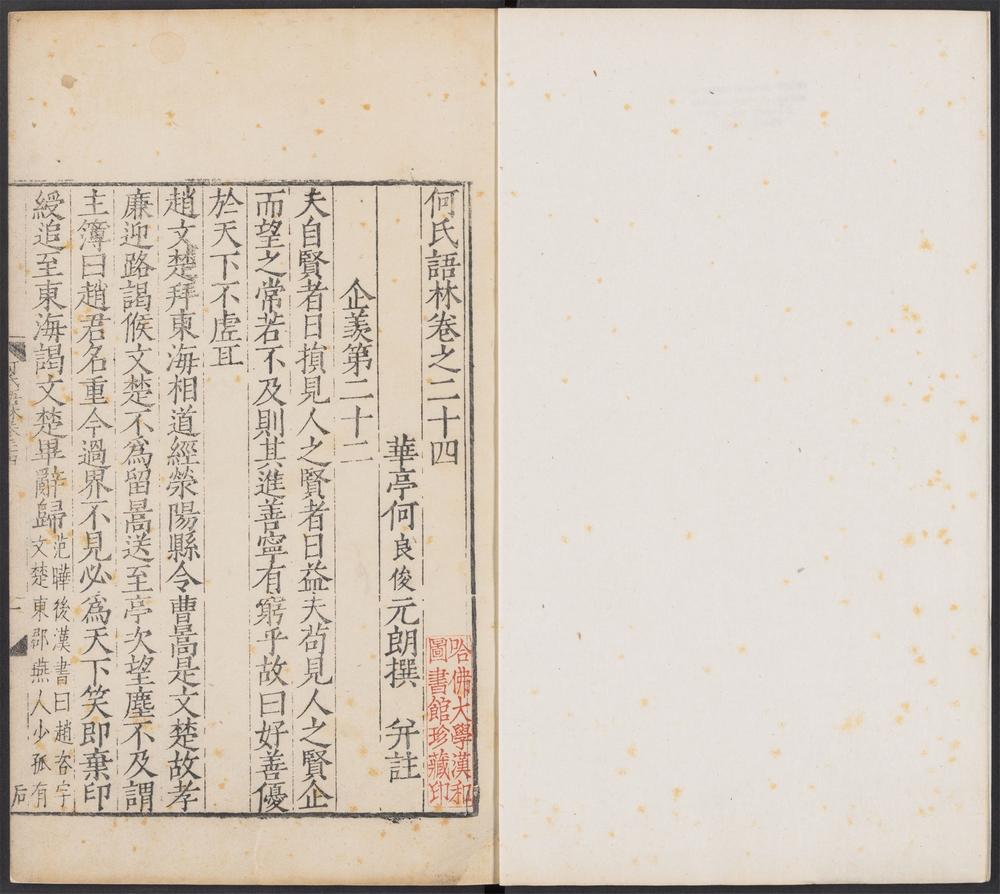 何氏語林卷之二十四
華亭何良俊元朗撰 并註
企羨第二十二
夫自賢者日損見人之賢者日益夫茍見人之賢企
而望之常若不及則其進善寧有窮乎故曰好善優
於天下不虛耳
趙文楚拜東海相道經滎陽縣令曹暠是文楚故孝
廉迎路謁候文楚不為留暠送至亭次望塵不及謂
主簿曰趙君名重今過界不見必為天下笑即棄印
綬追至東海謁文楚畢辭歸
范曄後漢書曰趙咨字
文楚東郡燕人少孤有
哈佛大學漢和
圖書館珍藏印